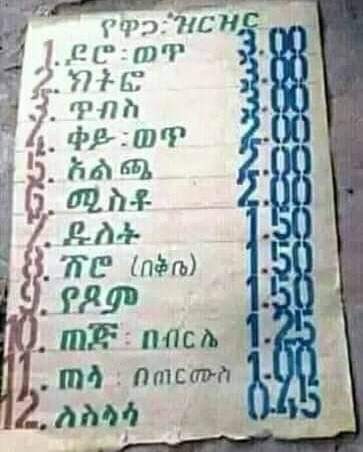 የዋጋ፡ዝርዝር
1. ዶሮ፡ወጥ 3.00
2. ክትፎ 3.00
3. ጥብስ 3.00
4. ቀይ፡ወጥ 2.00
5. አልጫ 2.00
6. ሚስቶ 2.00
7. ዱለት 1.50
8. ሽሮ (በቅቤ) 1.50
9. የጾም 1.50
10. ጠጅ፡በብርሌ 1.25
11. ጠላ፡በጠርሙስ 1.00
12. ለስላሳ 0.45